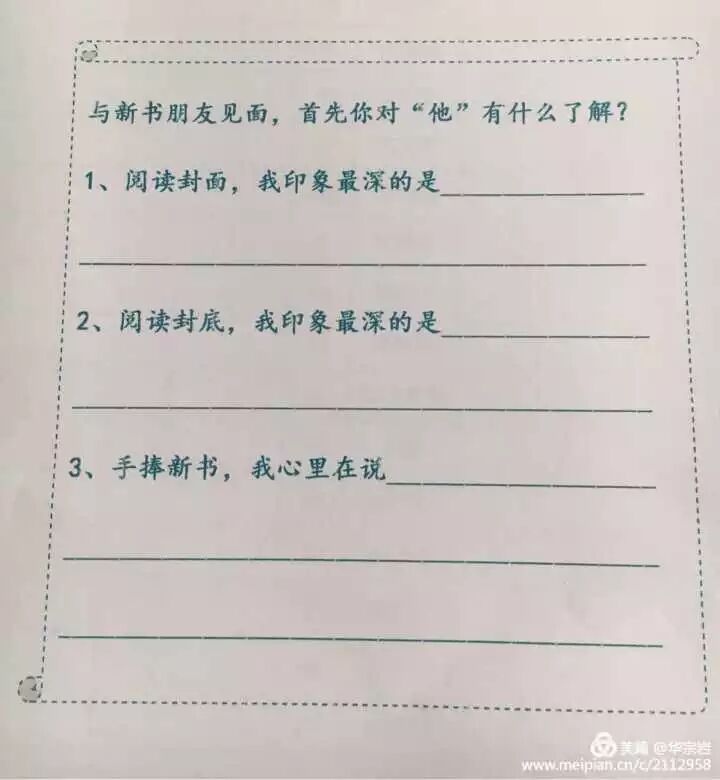 与新书朋友见面，首先你对“他”有什么了解？
1、阅读封面，我印象最深的是
2、阅读封底，我印象最深的是
3、手捧新书，我心里在说
美篇 @华宗岩
www.meipian.cn/c/2112958